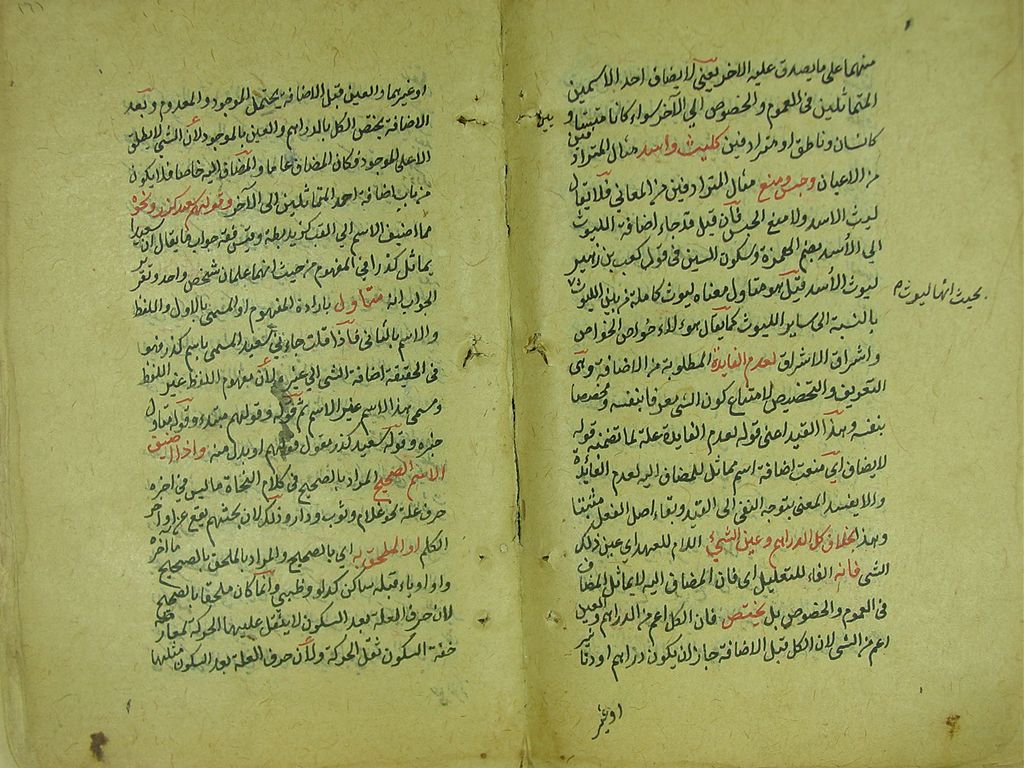 منهما على ما يصدق عليه الاخر يعني لا يضاف احد الاسمين
المتماثلين في العموم والخصوص الي الآخر سواء كانا متبينين
كانسان وناطق او مترادفين كليث واسد مثال المترادفين
من الاعيان وحبس ومنع مثال المترادفين من المعاني فلا يقال
ليث الاسد ولا منع الحبس فان قيل قد جاء اضافة الليوث
الى الأسد بضم الهمزة وسكون السين في قول كعب بن زهير
ليوث الأسد قيل هو متاول معناه ليوث كاملة من بين الليوث
بحيث انها ليوث
بالنسبة الى ساير الليوث كما يقال هؤلاء خواص الخواص
واشراق الاشراق لعدم الفايدة المطلوبة من الاضافة وهي
التعريف والتخصيص لامتناع كون الشي معرفا بنفسه ومخصصا
بنفسه وهذا القيد اعني قوله لعدم الفايدة علة لما تضمنه قوله
لا يضاف اي منعت اضافة اسم مماثل للمضاف اليه لعدم الفائدة
والا يفسد المعنى بتوجه النفي الى القيد وبقاء اصل الفعل مثبتا
وهذا بخلاف كل الدراهم وعين الشيء اللام للعهد اي عين ذلك
الشى فانه الفاء للتعليل اي فان المضاف اليه لا يماثل المضاف
في العموم والخصوص بل يختص فان الكل اعم من الدراهم والعين
اعم من الشي لان الكل قبل الاضافة جاز ان يكون دراهم او دنانير
او غير
او غيرهما والعين قبل الاضافة يحتمل الموجود والمعدوم وبعد
الاضافة يختص الكل بالدراهم والعين بالموجود لأن الشي لا يطلق
الا على الموجود فكان المضاف عاما والمضاف اليه خاصا فلا يكون
من باب اضافة احد المتماثلين الى الآخر وقولهم سعيد كرز ونحوه
مما اضيف الاسم الي اللقب كزيد بطة وقيس قفة جواب ما يقال ان سعيدا
يماثل كذرا في المفهوم من حيث انهما علمان شخص واحد وتقرير
الجواب انه متاول بارادة المفهوم او المسمى بالاول واللفظ
والاسم بالثاني فاذا قلت جاءني سعيد المسمى باسم كذر فهو
في الحقيقة اضافة الشى الى غيره ولأن مفهوم اللفظ غير اللفظ
ومسمى بهذا الاسم غير الاسم ثم قوله وقولهم مبتدء وقوله متاول
خبره وقوله سعيد كذر مقول قولهم او بدل منه واذا اضيف
الاسم الصحيح المراد بالصحيح في كلام النحاة ما ليس في اخره
حرف علة نحو غلام وثوب ودار وذلك لان بحثهم يقع عن اواخر
الكلم او الملحق به اي بالصحيح والمراد بالملحق بالصحيح ما اخره
واو او ياء قبله ساكن كدلو وظبي وانما كان ملحقا بالصحيح
لان حرف العلة بعد السكون لا يثقل عليها الحركة لمعارضة
خفة السكون ثقل الحركة ولأن حرف العلة بعد السكون مثلها